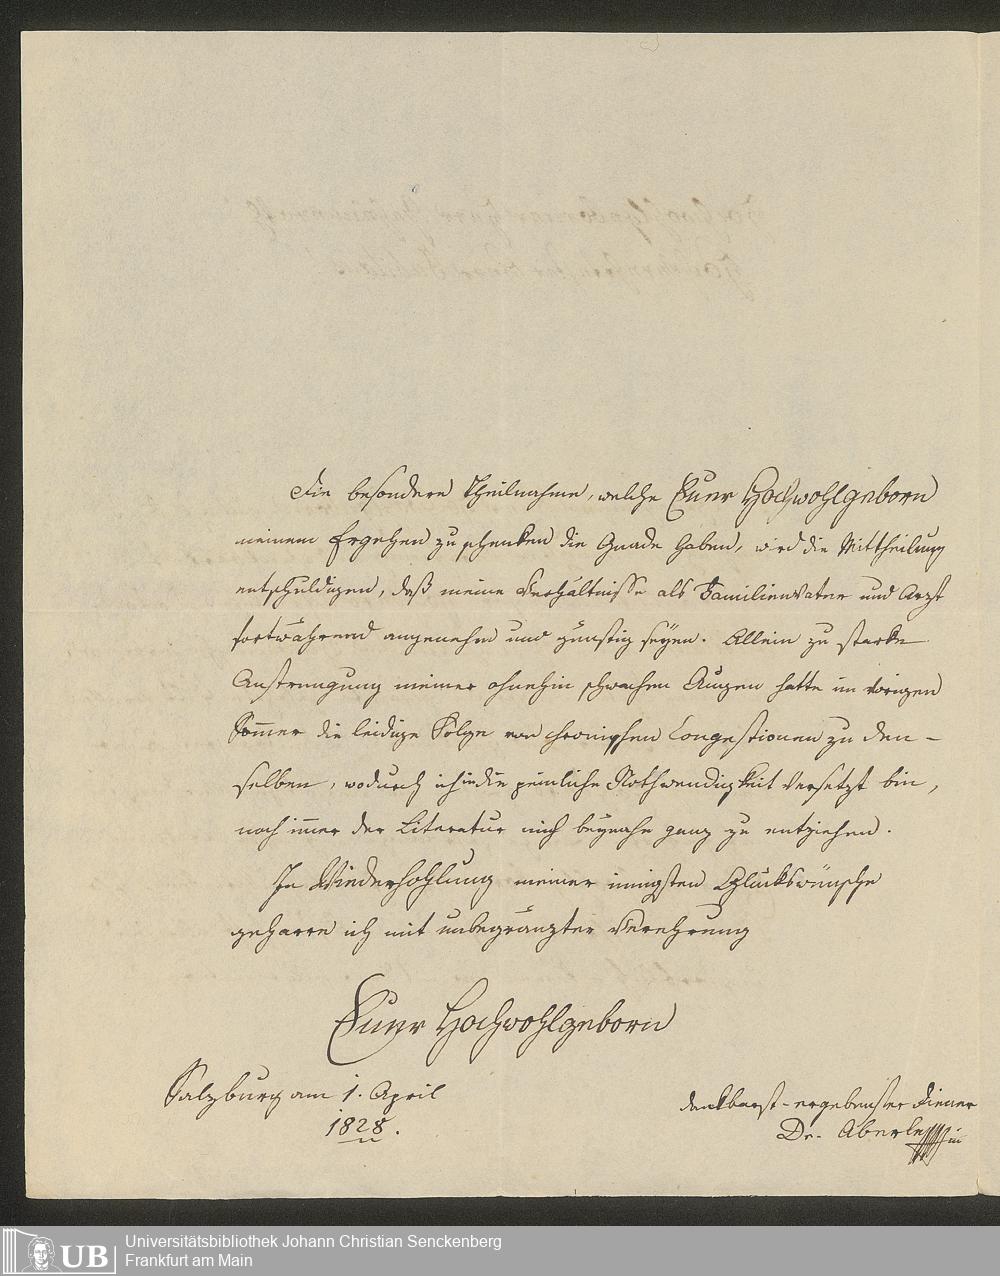 Die besondere Theilnahme, welche Euer Hochwohlgeborn
meinem Ergehen zu schenken die Gnade haben, wird die Mittheilung
entschuldigen, daß meine Verhältnisse als Familienvater und Arzt
fortwährend angenehm und günstig seyen. Allein zu starke
Anstrengung meiner ohnehin schwachen Augen hatte im vorigen
Sommer die leidige Folge von chronischen Congestionen zu den-
selben, wodurch ich in die peinliche Nothwendigkeit versetzt bin,
noch immer der Literatur mich beynahe ganz zu entziehen.
In Wiederhohlung meiner innigsten Glückswünsche
geharre ich mit unbegränzter Verehrung
Euer Hochwohlgeborn
Salzburg am 1. April
1828.
dankbarst-ergebenster Diener
Dr. Aberle
UB
Universitätsbibliothek Johann Christian Senckenberg
Frankfurt am Main